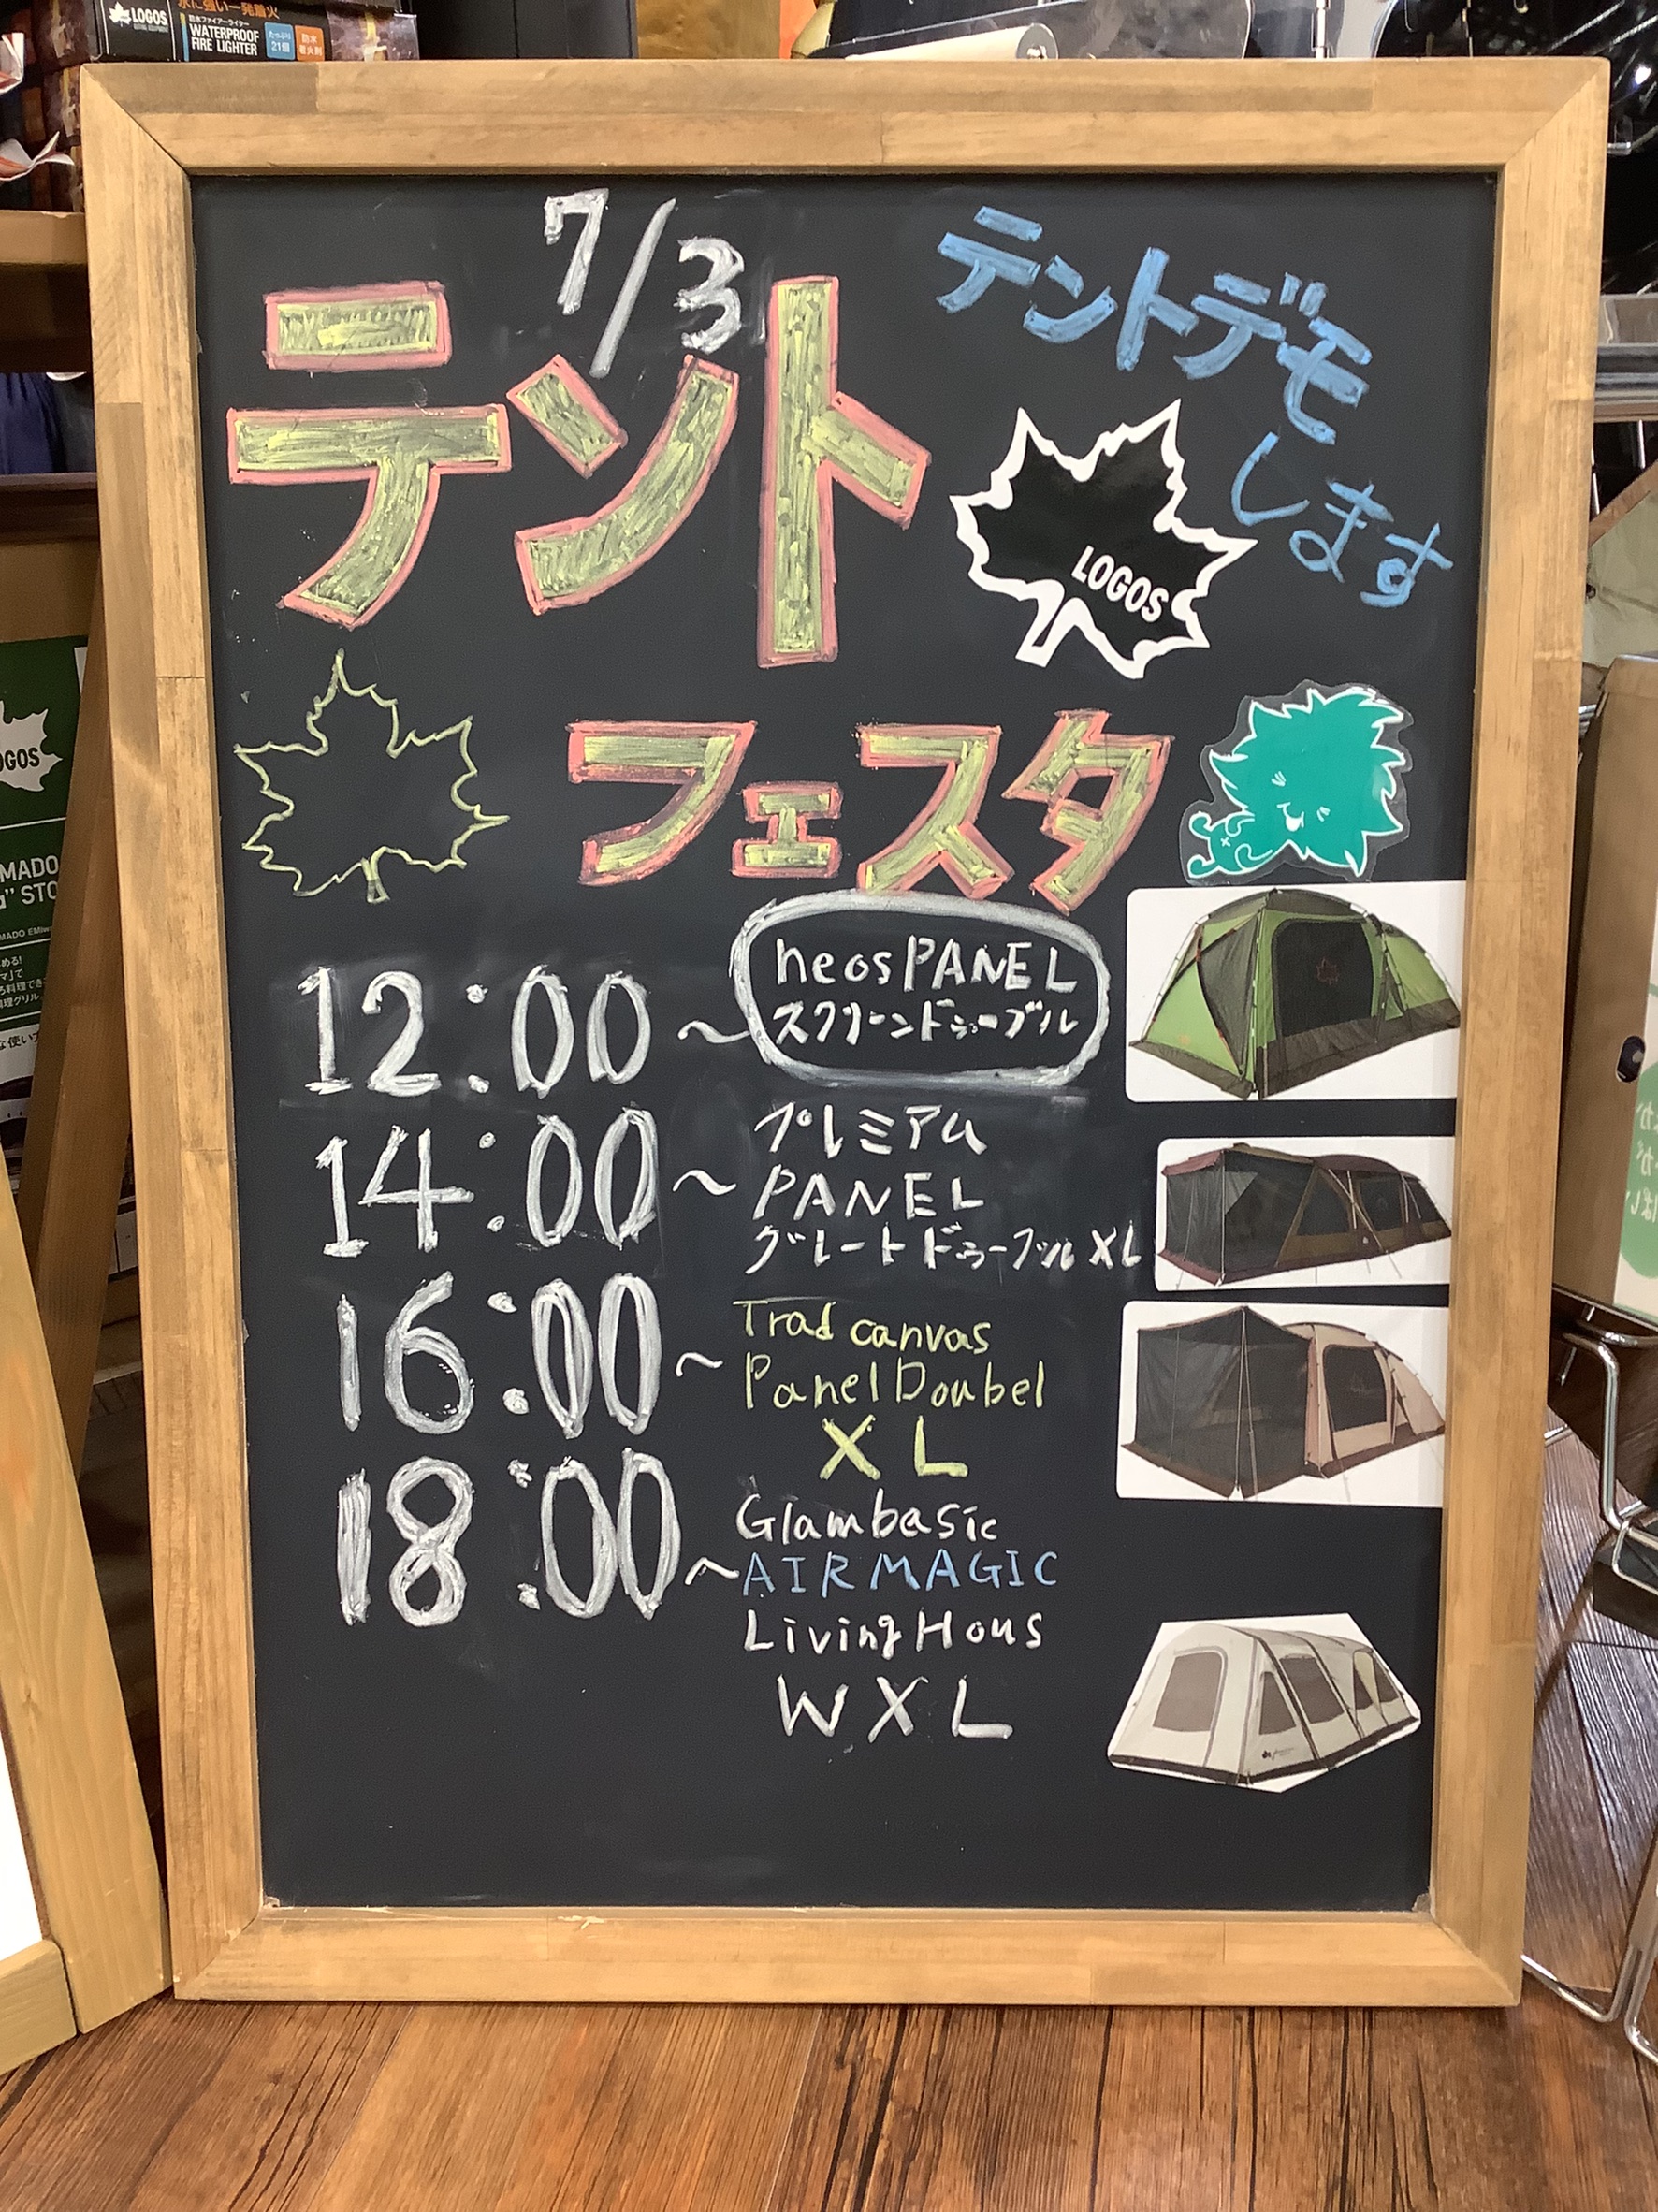 LOGOS
水に強い一発着火
防水ファイアーライター
WATERPROOF
FIRE LIGHTER
たっぷり
21個
防水
着火剤
7/3
テント
フェスタ
テントデモ
します
LOGOS
12:00～
neos PANEL
スクリーンドゥーブル
14:00～
プレミアム
PANEL
グレートドゥーブル XL
16:00～
Trad canvas
Panel Doubel
XL
18:00～
Glambasic
AIR MAGIC
Living Hous
WXL
OGOS
MADO
STO